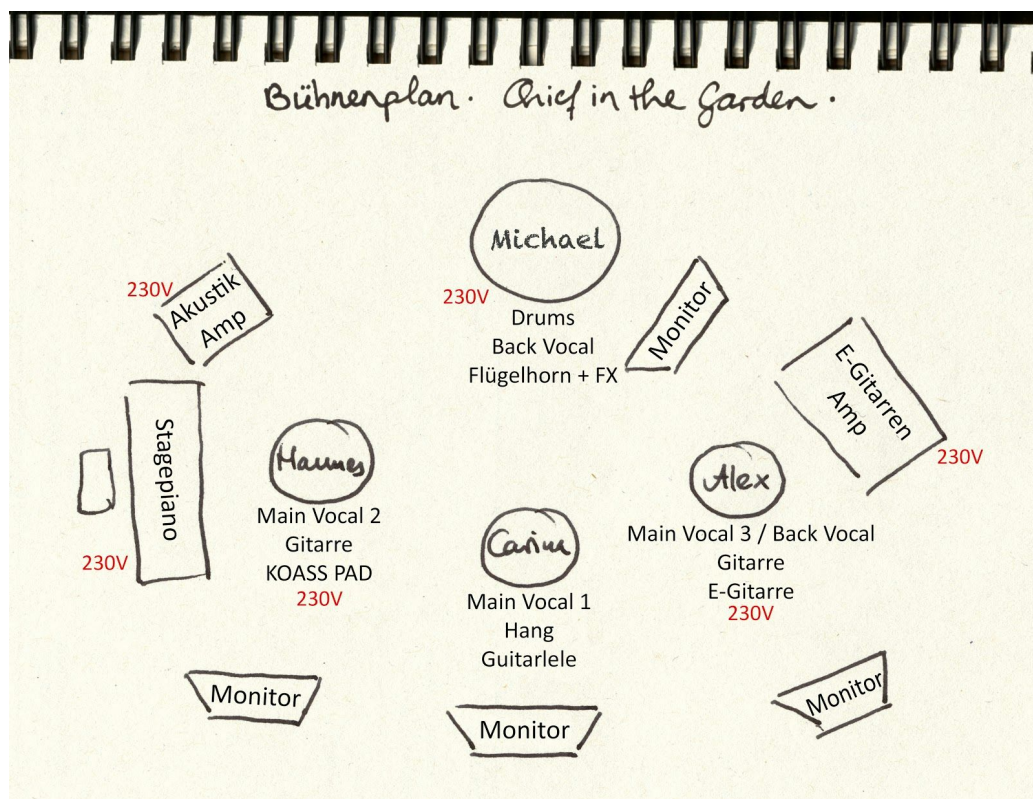 Bühnenplan. Chief in the Garden.
Michael
230V
Drums
Back Vocal
Flügelhorn + FX
Monitor
230V
Akustik
Amp
E-Gitarren
Amp
230V
Stagepiano
230V
Hannes
Main Vocal 2
Gitarre
KOASS PAD
230V
Carina
Main Vocal 1
Hang
Guitarlele
Alex
Main Vocal 3 / Back Vocal
Gitarre
E-Gitarre
230V
Monitor
Monitor
Monitor